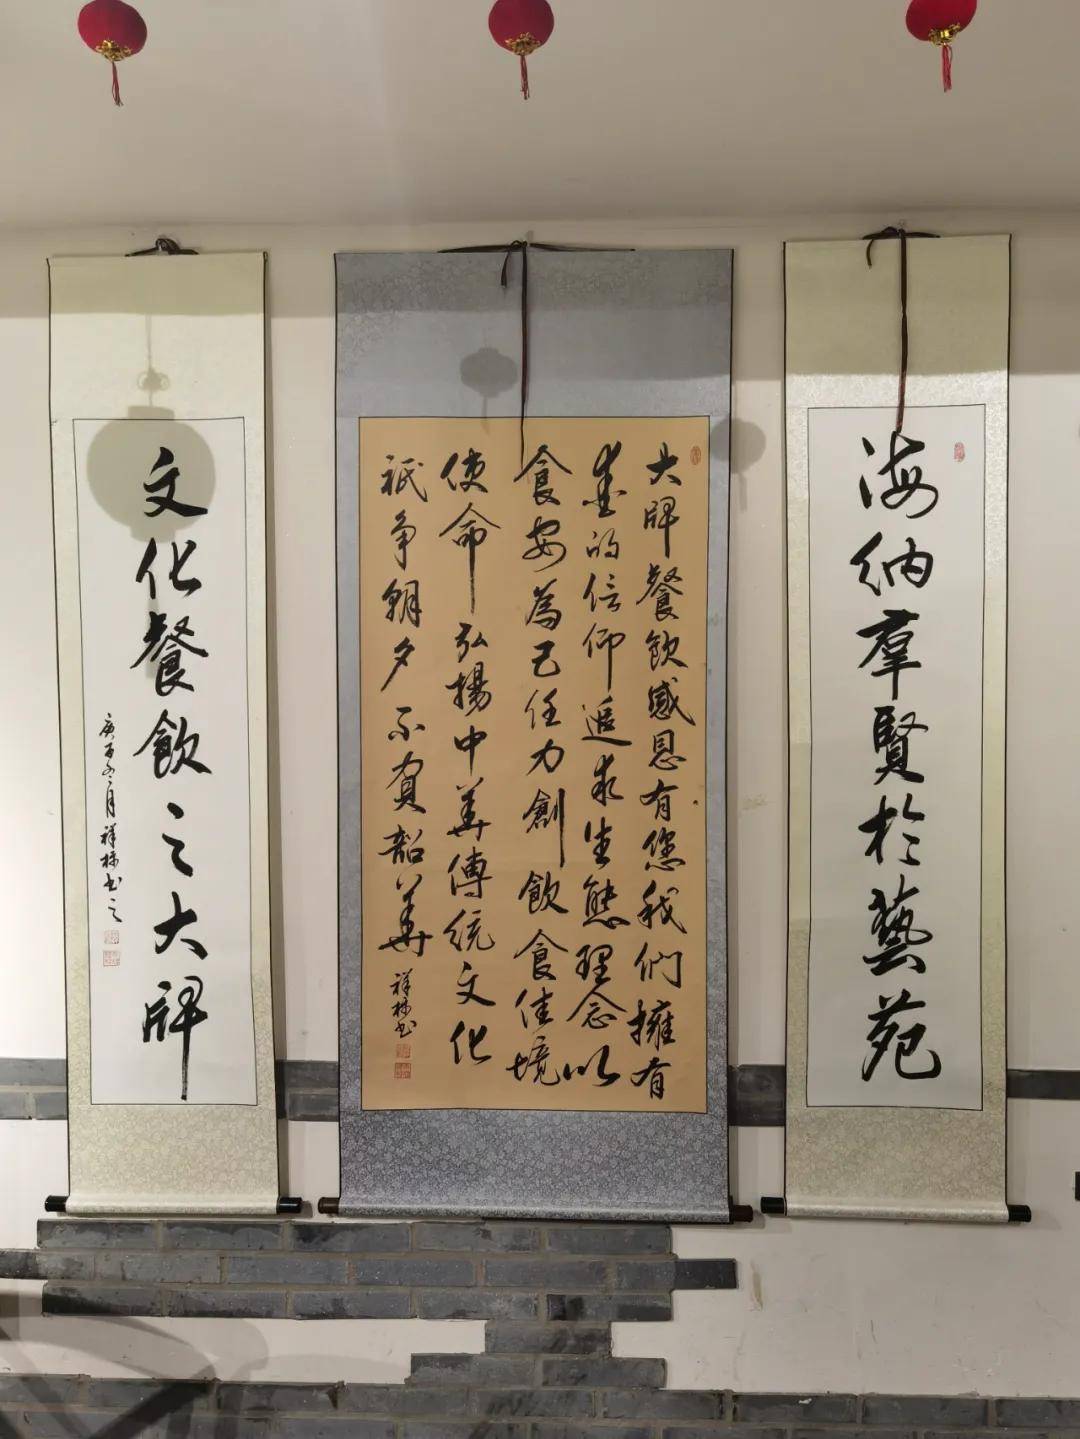 海納羣賢於藝苑
大牌餐飲感恩有您我們擁有
的信仰追求生態理念以
食安為己任力創飲食佳境
使命弘揚中華傳統文化
祇争朝夕不負韶華
祥书
文化餐飲之大牌
庚子冬月祥书之